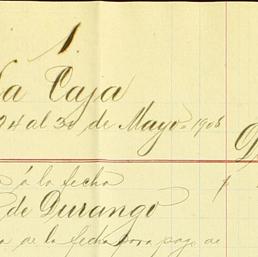 1.
la Caja
24 al 30 de Mayo 1908
á la fecha
de Durango
de la fecha para pago de